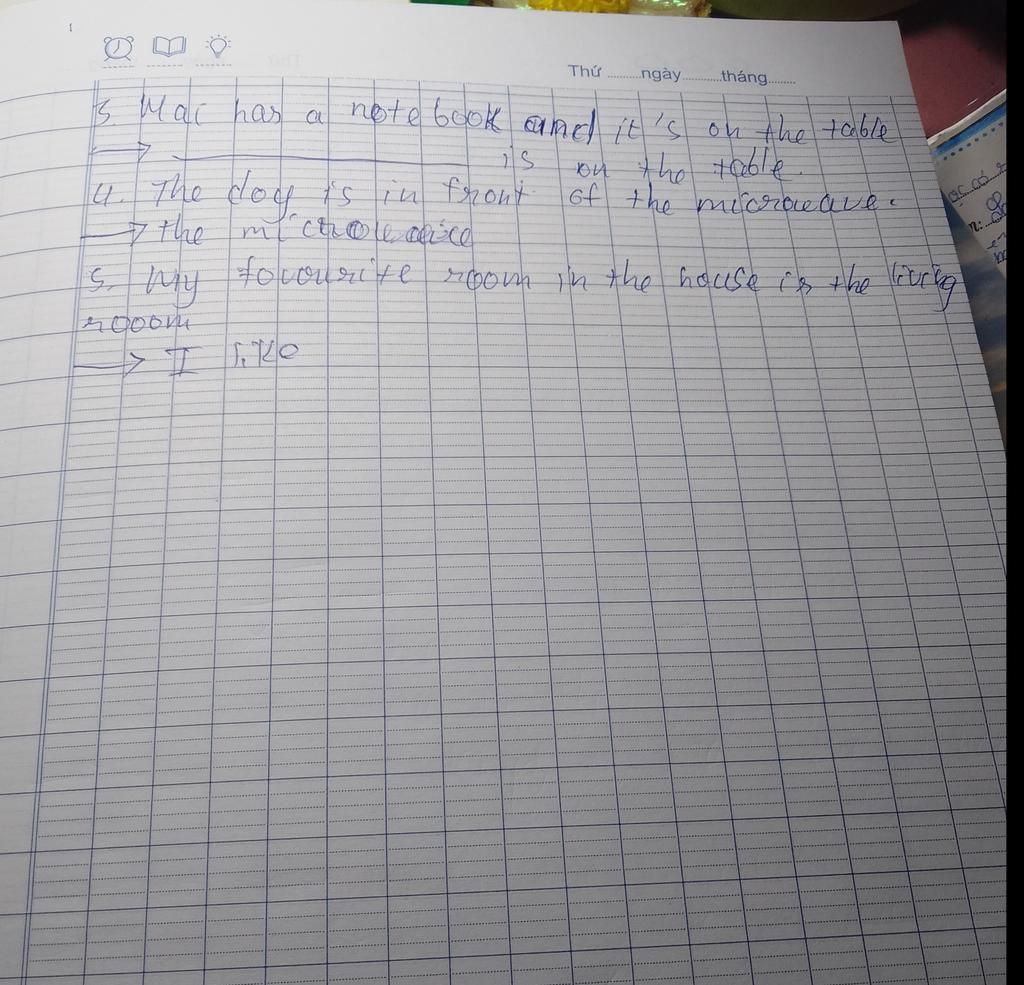 1
Thứ ..........ngày..........tháng.......
3. Mai has a notebook and it's on the table
→ ____________ is on the table.
4. The dog is in front of the microweave.
→ the
5. My fovourite room in the house is the living
rooom
→ I like